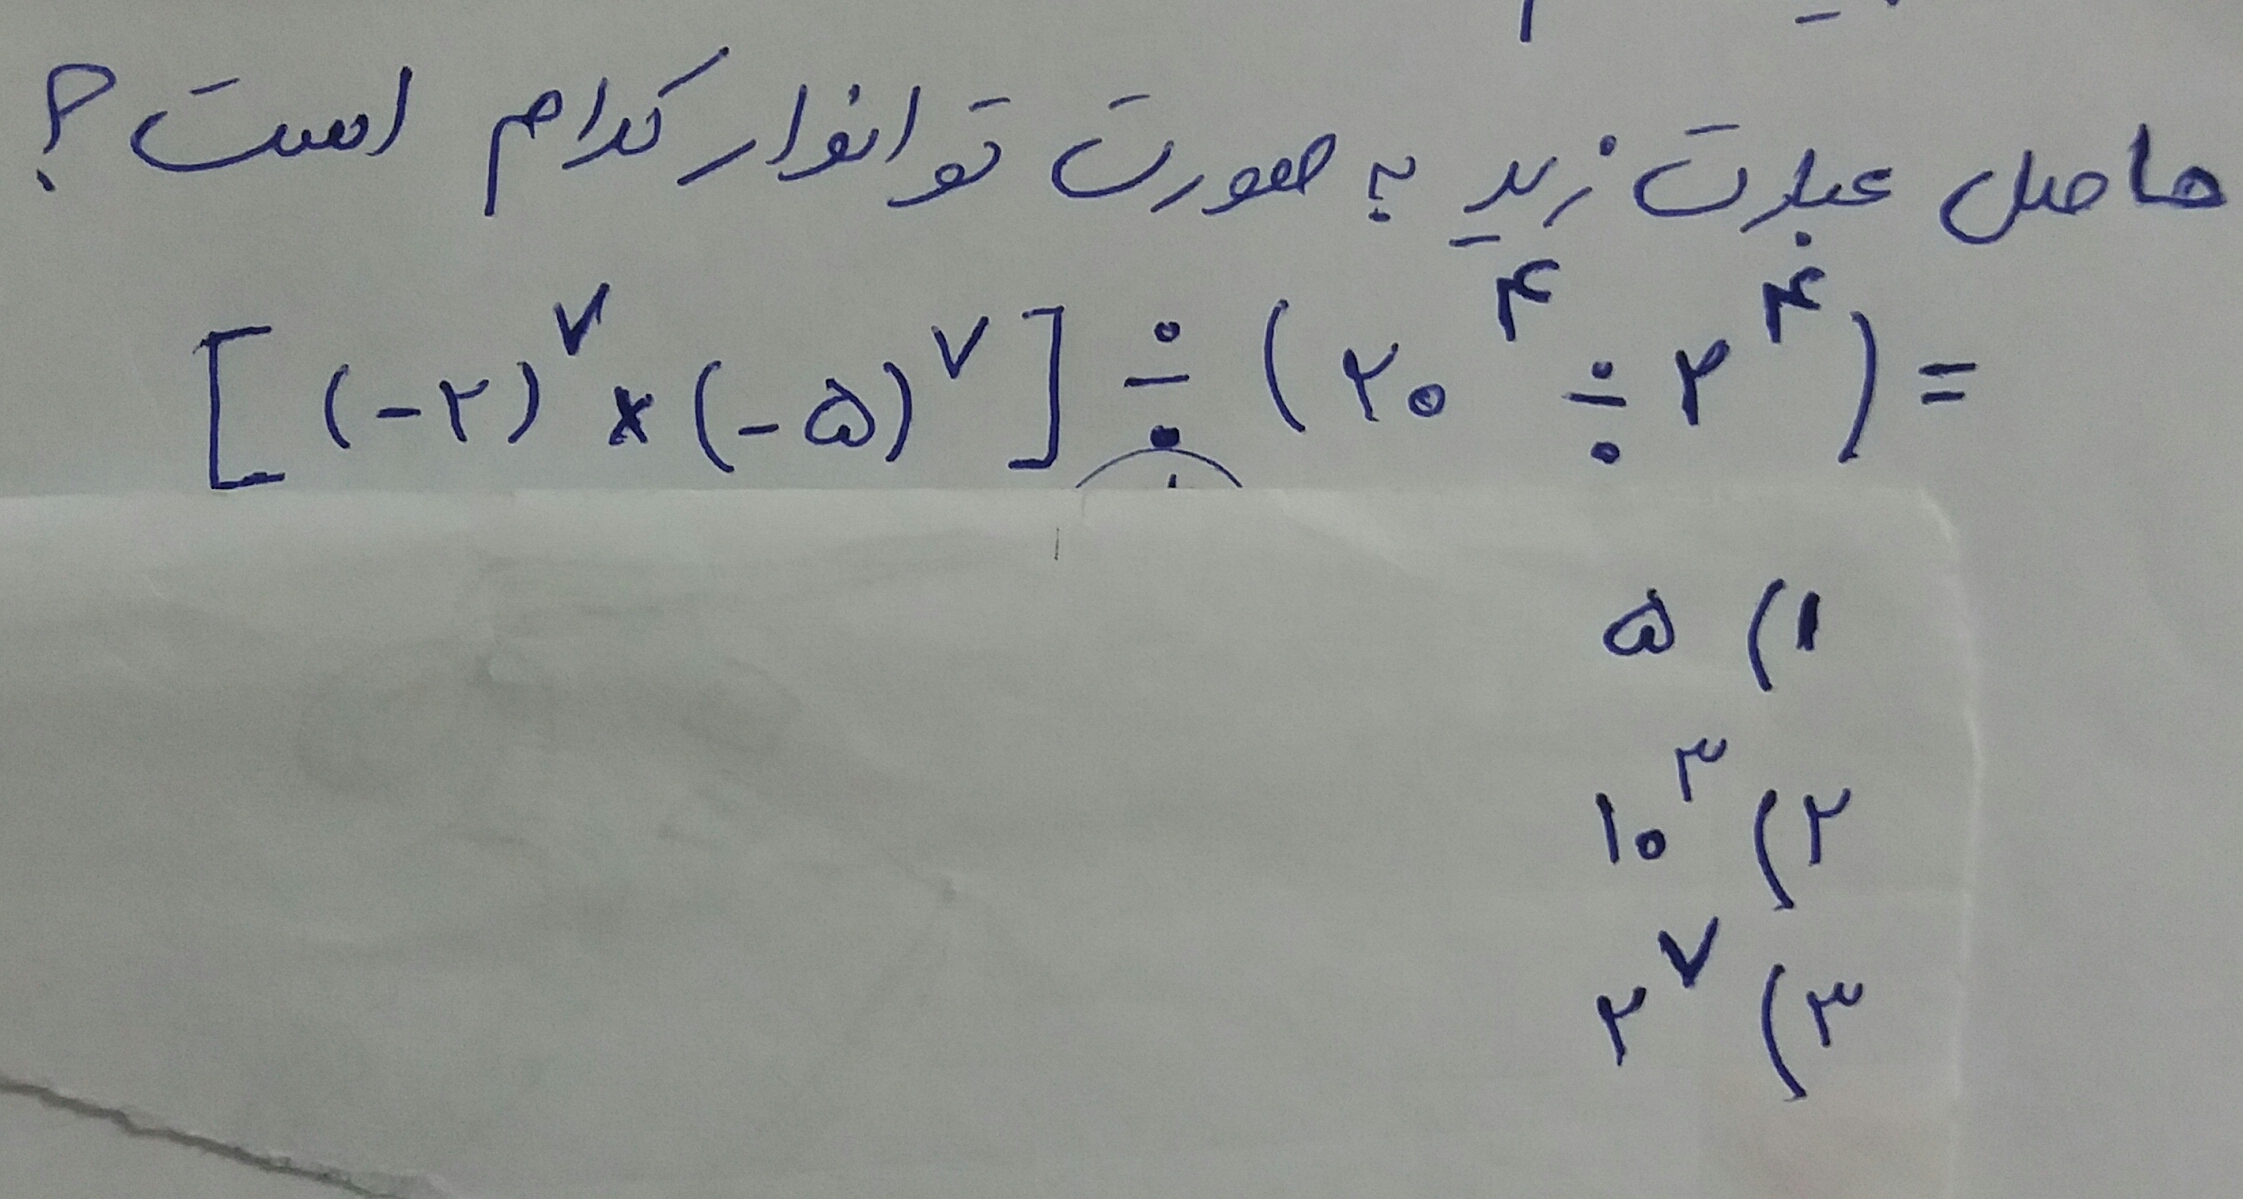 حاصل عبارت زیر به صورت تواندار کدام است؟
[(-۲)^۷ × (-۵)^۷] ÷ (۲۰^۴ ÷ ۲^۴) =
۱) ۵
۲) ۱۰^۳
۳) ۲^۷